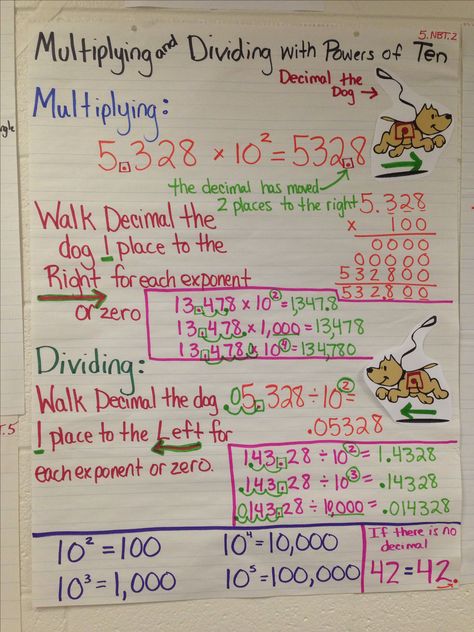 5.NBT.2
Multiplying and Dividing with Powers of Ten
Decimal the
Dog
Multiplying:
5.328 × 10² = 532.8
the decimal has moved
2 places to the right
Walk Decimal the
dog 1 place to the
Right for each exponent
or zero
5.328
× 100
0000
00000
532800
532.800
13.4.78 × 10² = 1347.8
13.478. × 1,000 = 13,478
13.4780 × 10⁴ = 134,780
Dividing:
Walk Decimal the dog
1 place to the Left for
each exponent or zero.
.05.328 ÷ 10² =
.05328
1.43.28 ÷ 10² = 1.4328
.143.28 ÷ 10³ = .14328
.0143.28 ÷ 10,000 = .014328
10² = 100
10⁴ = 10,000
10³ = 1,000
10⁵ = 100,000
If there is no
decimal
42 = 42.